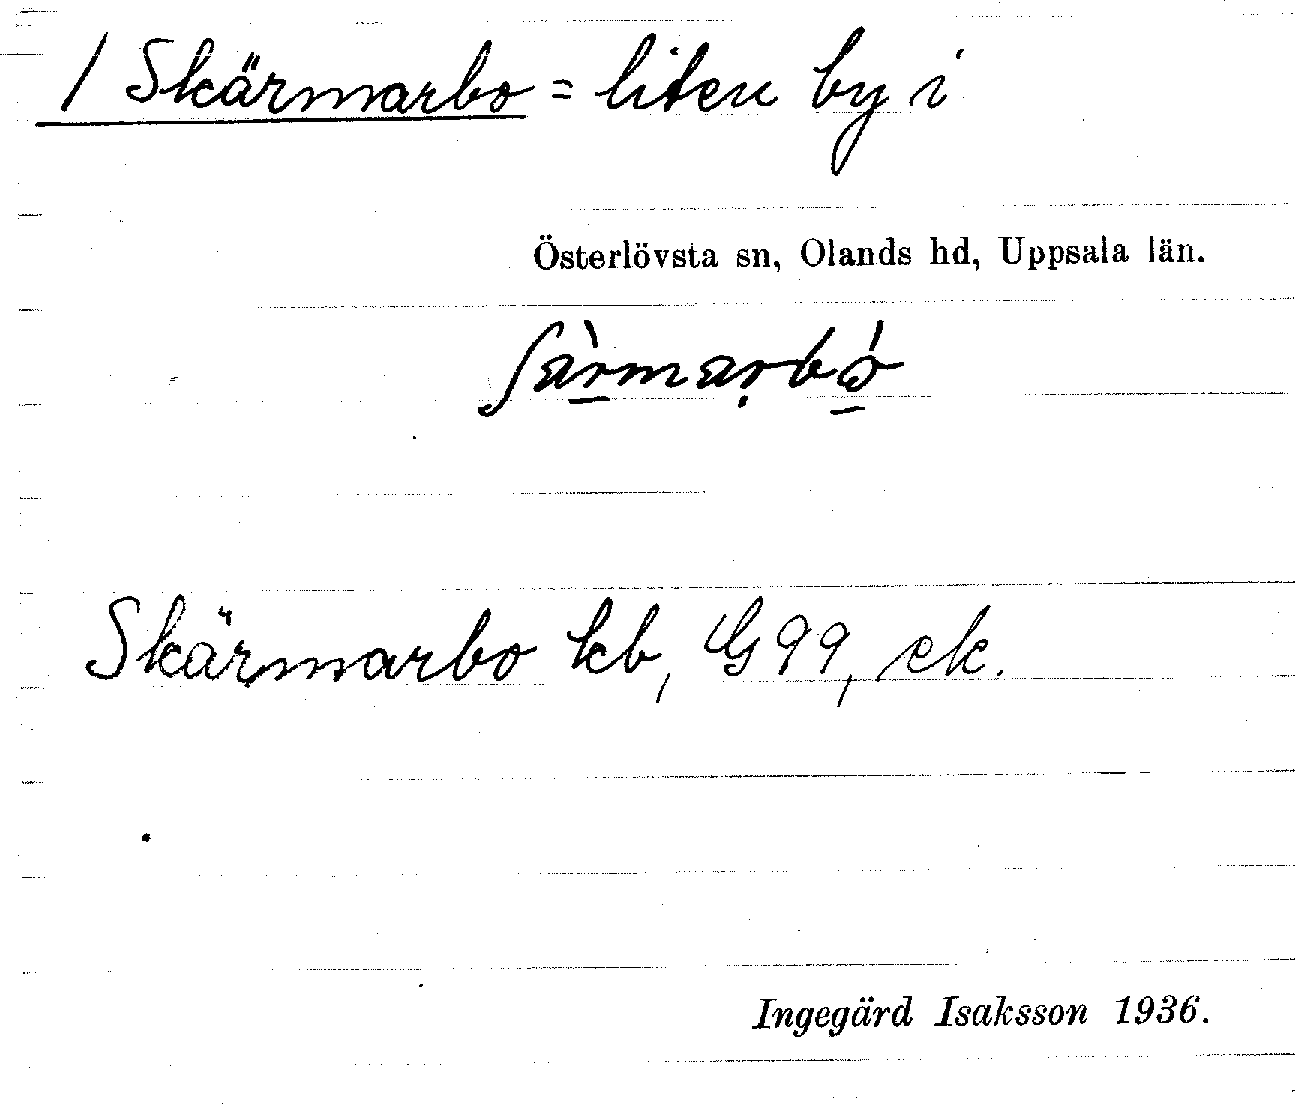 / Skärmarbo = liten by i
Österlövsta sn, Olands hd, Uppsala län.
Skärmarbo kb, G 99, ek.
Ingegärd Isaksson 1936.